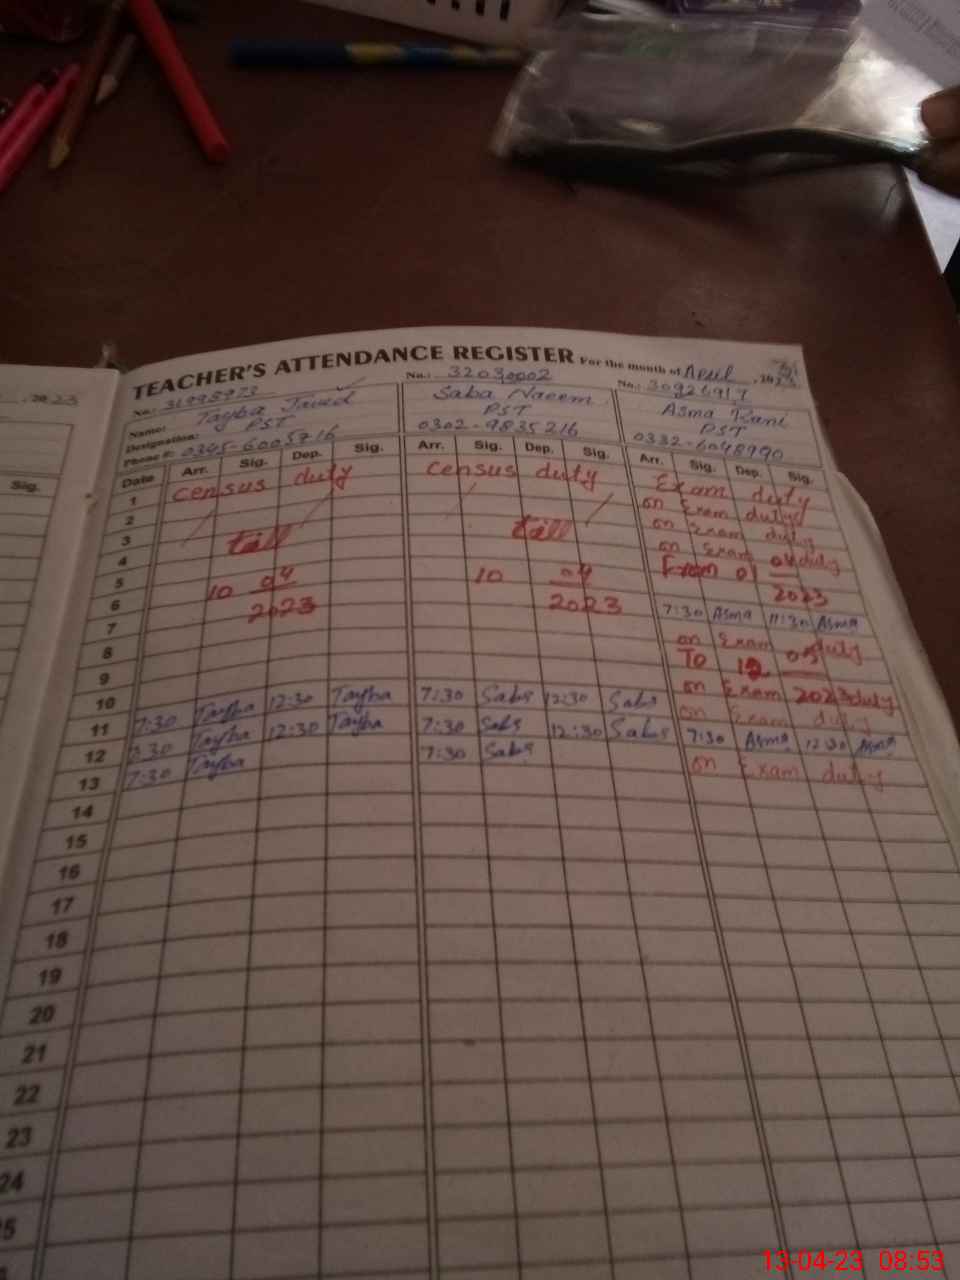 , 2023
Sig.
TEACHER'S ATTENDANCE REGISTER For the month of April , 2023
No.: 31998973 No.: 32030002 No.: 30926917
Name: Tayba Javed Saba Naeem Asma Rani
Designation: PST PST PST
Phone #: 0345-6005716 0302-9835216 0332-6048990
Date Arr. Sig. Dep. Sig. Arr. Sig. Dep. Sig. Arr. Sig. Dep. Sig.
1 census duty census duty Exam duty
2 on Exam duty
3 till till on Exam duty
4 on Exam duty
5 10 04 10 04 From 01 04
6 2023 2023 2023
7 7:30 Asma 11:30 Asma
8 on Exam duty
9 To 12 05
10 7:30 Tayba 12:30 Tayba 7:30 Saba 12:30 Saba on Exam 2023 duty
11 7:30 Tayba 12:30 Tayba 7:30 Saba 12:30 Saba on Exam duty
12 7:30 Tayba 7:30 Saba 7:30 Asma 12:30 Asma
13 on Exam duty
14
15
16
17
18
19
20
21
22
23
24
25
13-04-23 08:53